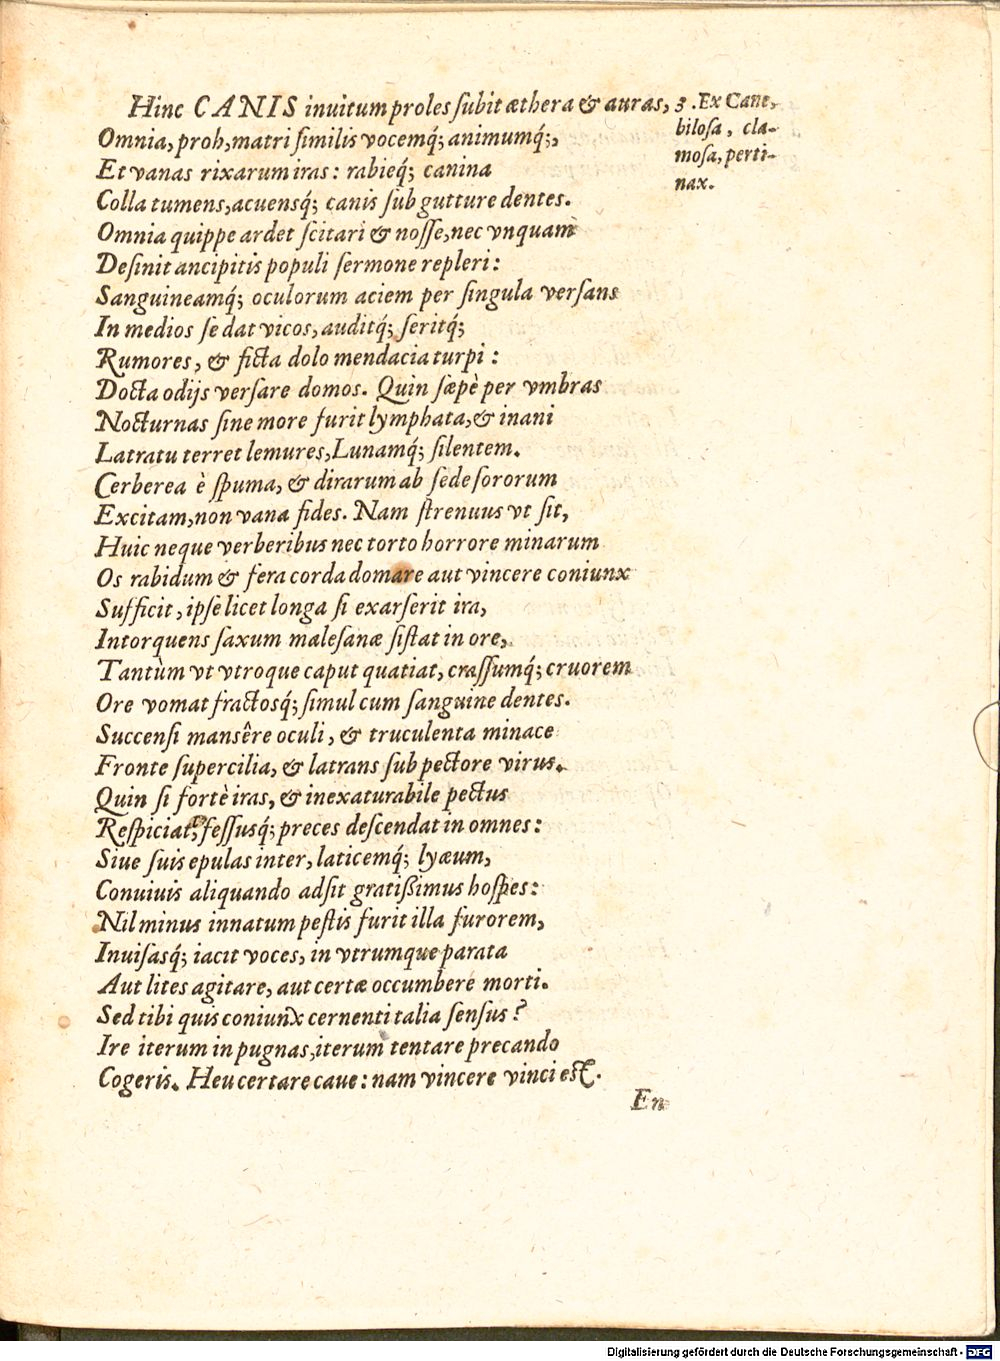 Hinc CANIS inuitum proles ſubit æthera & auras,
3. Ex Cane,
biloſa, cla-
moſa, perti-
nax.
Omnia, proh, matri ſimilis vocemq́; animumq́;,
Et vanas rixarum iras: rabieq́; canina
Colla tumens, acuensq́; canis ſub gutture dentes.
Omnia quippe ardet ſcitari & noſſe, nec vnquam
Deſinit ancipitis populi ſermone repleri:
Sanguineamq́; oculorum aciem per ſingula verſans
In medios ſe dat vicos, auditq́; ſeritq́;
Rumores, & ficta dolo mendacia turpi:
Docta odijs verſare domos. Quin ſæpè per vmbras
Nocturnas ſine more furit lymphata, & inani
Latratu terret lemures, Lunamq́; ſilentem.
Cerberea è ſpuma, & dirarum ab ſede ſororum
Excitam, non vana fides. Nam ſtrenuus vt ſit,
Huic neque verberibus nec torto horrore minarum
Os rabidum & fera corda domare aut vincere coniunx
Sufficit, ipſe licet longa ſi exarſerit ira,
Intorquens ſaxum maleſanæ ſiſtat in ore,
Tantùm vt vtroque caput quatiat, craſſumq́; cruorem
Ore vomat fractosq́; ſimul cum ſanguine dentes.
Succenſi manſêre oculi, & truculenta minace
Fronte ſupercilia, & latrans ſub pectore virus.
Quin ſi fortè iras, & inexaturabile pectus
Reſpiciat, feſſusq́; preces deſcendat in omnes:
Siue ſuis epulas inter, laticemq́; lyæum,
Conuiuis aliquando adſit gratißimus hoſpes:
Nil minus innatum peſtis furit illa furorem,
Inuiſasq́; iacit voces, in vtrumque parata
Aut lites agitare, aut certæ occumbere morti.
Sed tibi quis coniunx cernenti talia ſenſus?
Ire iterum in pugnas, iterum tentare precando
Cogeris. Heu certare caue: nam vincere vinci eſt.
En
Digitalisierung gefördert durch die Deutsche Forschungsgemeinschaft - DFG